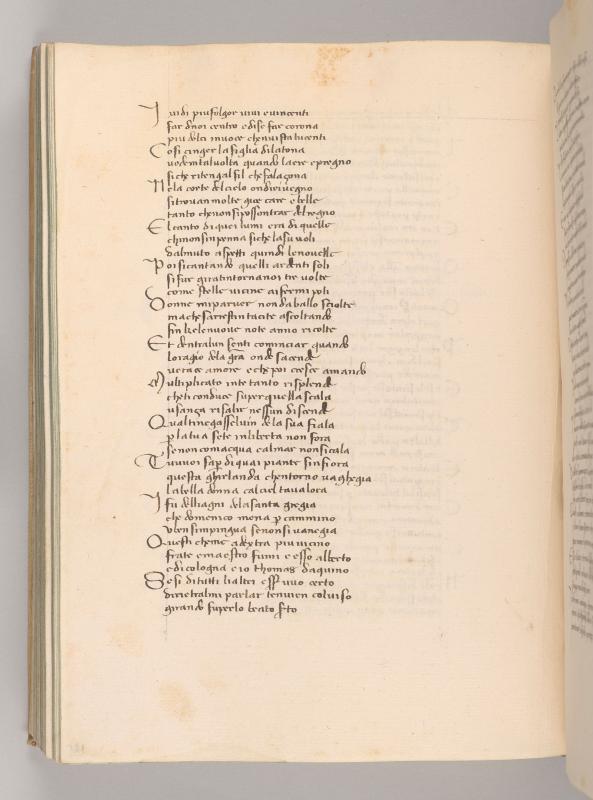 I vidi piu fulgor vivi e vincenti
far di noi centro e di se far corona
piu dolci in voce che in vista lucenti
Cosi cinger la figlia di latona
vedem tal volta quando laere e pregno
si che ritengal fil che fa la çona
Nela corte del cielo ondio rivegno
si trovan molte gioe care e belle
tanto che non si posson trar del regno
El canto di quei lumi era di quelle
chi non simpenna si che la su voli
dal muto aspetti quindi le novelle
Poi si cantando quelli ardenti soli
si fur girati intorno a noi tre volte
come stelle vicine ai fermi poli
Donne mi parver non da ballo sciolte
ma che sarrestin tacite ascoltando
fin che le nuove note anno ricolte
Et dentro alun senti cominciar quando
lo ragio dela gra onde sacende
verace amore e che poi cresce amando
Multiplicato in te tanto risplende
che ti conduce su per quella scala
u sança risalir nessun discende
Qual ti negasse l vin dela sua fiala
p la tua sete in liberta non fora
se non comacqua calmar non si cala
Tu vuoi sap di quai piante sinfiora
questa ghirlanda chentorno vaghegia
la bella donna calciel tavalora
I fu delli agni dela santa gregia
che domenico mena p cammino
u ben simpingua se non si vanegia
Questi che me a dextra piu vicino
frate e maestro fummi e esso alberto
e di cologna e io thomas daquino
Se si di tutti li altri esser vuo certo
diretro al mi parlar ten vien col viso
girando su per lo beato serto